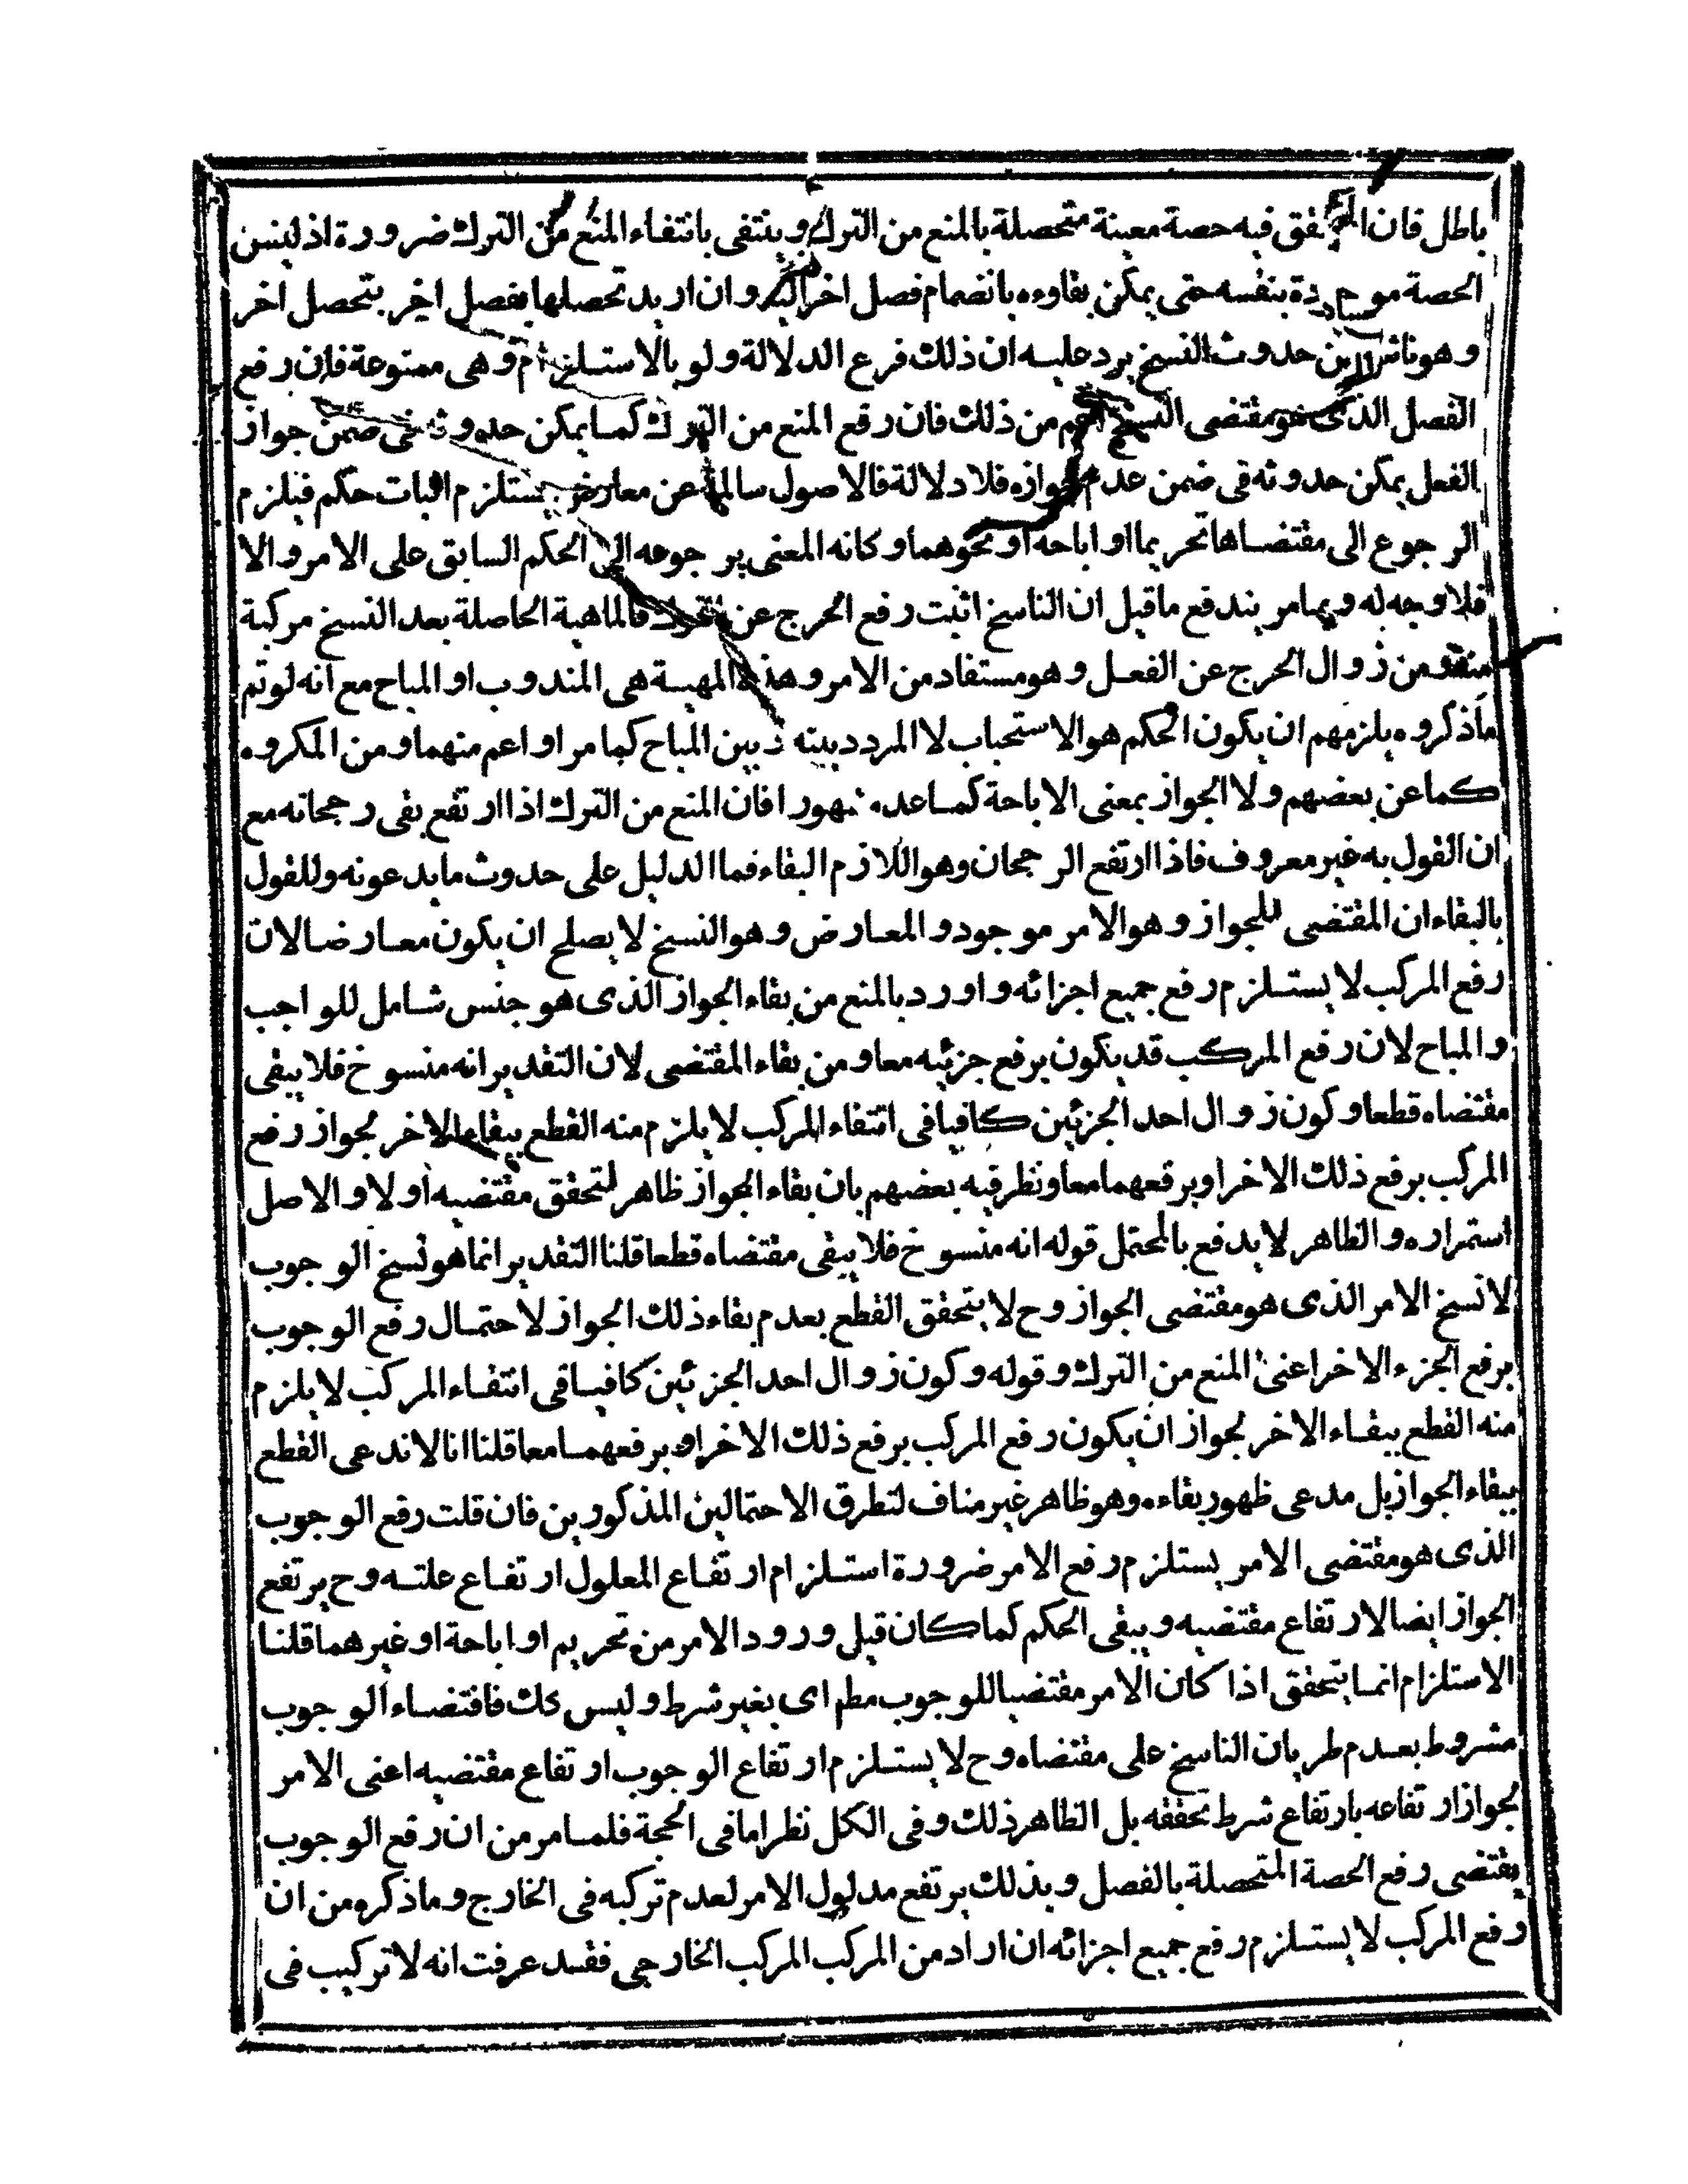 باطل فان المتحقق فيه حصة معينة متحصلة بالمنع من الترك وينتفى بانتفاء المنع من الترك ضرورة اذ ليس
الحصة موجودة بنفسه حتى يمكن بقاوءه بانضمام فصل اخر اليه وان اريد تحصلها بفصل اخر بتحصل اخر
وهو ناش من حدوث النسخ يرد عليه ان ذلك فرع الدلالة ولو بالاستلزام وهى ممنوعة فان رفع
الفصل الذى هو مقتضى النسخ اعم من ذلك فان رفع المنع من الترك كما يمكن حدوثه فى ضمن جواز
الفعل يمكن حدوثه فى ضمن عدم جوازه فلا دلالة فالاصول سالمة عن معارض يستلزم اثبات حكم فيلزم
الرجوع الى مقتضاها تحريما او اباحه او نحوهما وكانه المعنى برجوعه الى الحكم السابق على الامر والا
فلا وجه له وبما مر يندفع ما قيل ان الناسخ اثبت رفع الحرج عن الترك فالماهية الحاصلة بعد النسخ مركبة
منه ومن زوال الحرج عن الفعل وهو مستفاد من الامر وهذه المهية هى المندوب او المباح مع انه لو تم
ما ذكروه يلزمهم ان يكون الحكم هو الاستحباب لا المردد بينه وبين المباح كما مر او اعم منهما ومن المكروه
كما عن بعضهم ولا الجواز بمعنى الاباحة كما عده مشهورا فان المنع من الترك اذا ارتفع بقى رجحانه مع
ان القول به غير معروف فاذا ارتفع الرجحان وهو اللازم البقاء فما الدليل على حدوث ما يدعونه وللقول
بالبقاء ان المقتضى للجواز وهو الامر موجود والمعارض وهو النسخ لا يصلح ان يكون معارضا لان
رفع المركب لا يستلزم رفع جميع اجزائه واورد بالمنع من بقاء الجواز الذى هو جنس شامل للواجب
والمباح لان رفع المركب قد يكون برفع جزئيه معا ومن بقاء المقتضى لان التقدير انه منسوخ فلا يبقى
مقتضاه قطعا وكون زوال احد الجزئين كافيا فى انتفاء المركب لا يلزم منه القطع ببقاء الاخر لجواز رفع
المركب برفع ذلك الاخر او برفعهما معا ونظر فيه بعضهم بان بقاء الجواز ظاهر لتحقق مقتضيه اولا والاصل
استمراره والظاهر لا يدفع بالمحتمل قوله انه منسوخ فلا يبقى مقتضاه قطعا قلنا التقدير انما هو نسخ الوجوب
لا نسخ الامر الذى هو مقتضى الجواز وح لا يتحقق القطع بعدم بقاء ذلك الجواز لاحتمال رفع الوجوب
برفع الجزء الاخر اعنى المنع من الترك وقوله وكون زوال احد الجزئين كافيا فى انتفاء المركب لا يلزم
منه القطع ببقاء الاخر لجواز ان يكون رفع المركب برفع ذلك الاخر او برفعهما معا قلنا انا لا ندعى القطع
ببقاء الجواز بل مدعى ظهور بقاءه وهو ظاهر غير مناف لتطرق الاحتمالين المذكورين فان قلت رفع الوجوب
الذى هو مقتضى الامر يستلزم رفع الامر ضرورة استلزام ارتفاع المعلول ارتفاع علته وح يرتفع
الجواز ايضا لارتفاع مقتضيه ويبقى الحكم كما كان قبل ورود الامر من تحريم او اباحة او غيرهما قلنا
الاستلزام انما يتحقق اذا كان الامر مقتضيا للوجوب مطم اى بغير شرط وليس كك فاقتضاء الوجوب
مشروط بعدم طريان الناسخ على مقتضاه وح لا يستلزم ارتفاع الوجوب ارتفاع مقتضيه اعنى الامر
لجواز ارتفاعه بارتفاع شرط تحققه بل الظاهر ذلك وفى الكل نظر اما فى الحجة فلما مر من ان رفع الوجوب
يقتضى رفع الحصة المتحصلة بالفصل وبذلك يرتفع مدلول الامر لعدم تركبه فى الخارج وما ذكره من ان
رفع المركب لا يستلزم رفع جميع اجزائه ان اراد من المركب المركب الخارجى فقد عرفت انه لا تركيب فى